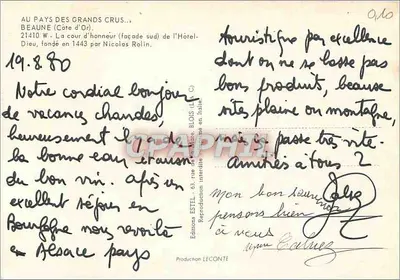 AU PAYS DES GRANDS CRUS...
BEAUNE (Côte d'Or).
21410 W - La cour d'honneur (façade sud) de l'Hôtel-
Dieu, fondé en 1443 par Nicolas Rolin.
19.8.80
Notre cordial bonjour
de vacances chaudes,
heureusement il y a de
la bonne eau et aussi
du bon vin. après un
excellent séjour en
Bourgogne nous revoilà
en Alsace pays
touristique par excellence
dont on ne se lasse pas
bons produits, beaux
sites plaine ou montagne,
mais passe très vite.
Amitiés à tous 2
mon bon souvenir
pensons bien
à vous
Editions ESTEL
Reproduction interdite
Production LECONTE
010